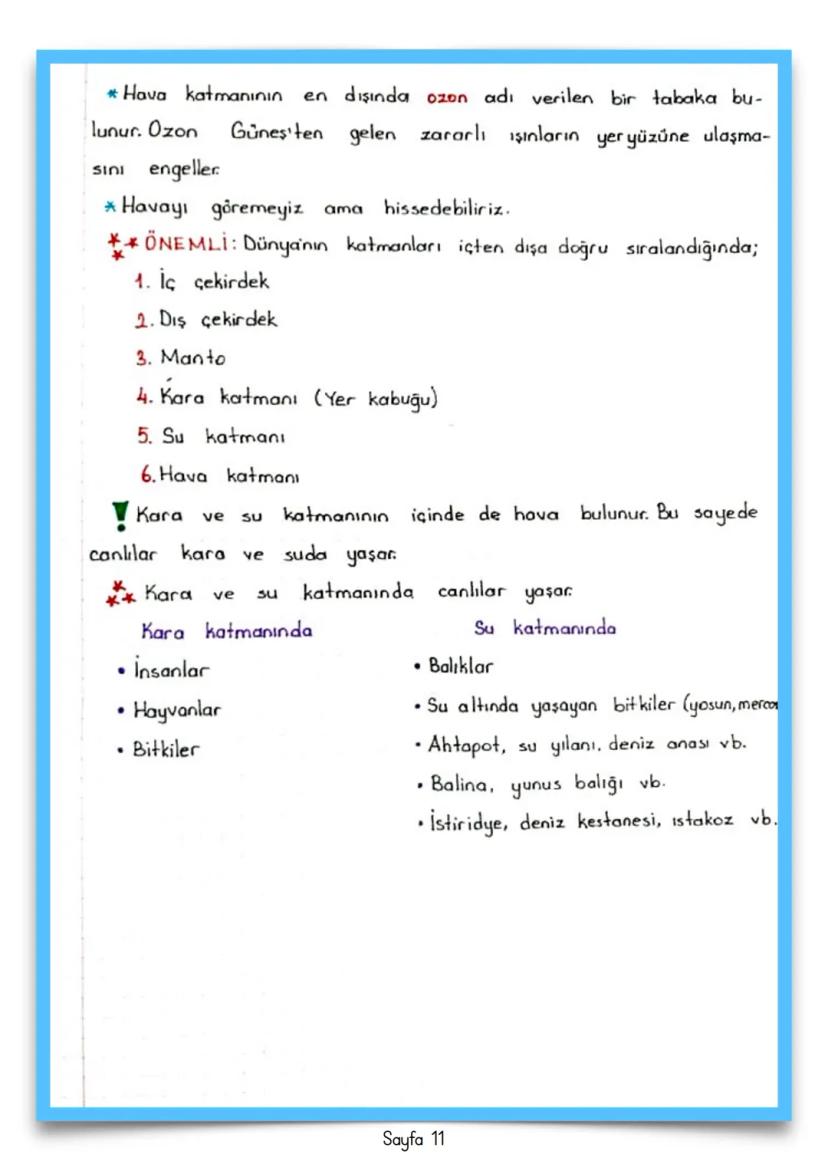 * Hava katmanının en dışında ozon adı verilen bir tabaka bu-
lunur. Ozon Güneş'ten gelen zararlı ışınların yeryüzüne ulaşma-
sını engeller.
* Havayı göremeyiz ama hissedebiliriz.
*** ÖNEMLİ: Dünya'nın katmanları içten dışa doğru sıralandığında;
1. İç çekirdek
2. Dış çekirdek
3. Manto
4. Kara katmanı (Yer kabuğu)
5. Su katmanı
6. Hava katmanı
! Kara ve su katmanının içinde de hava bulunur. Bu sayede
canlılar kara ve suda yaşar.
*** Kara ve su katmanında canlılar yaşar.
Kara katmanında Su katmanında
• İnsanlar • Balıklar
• Hayvanlar • Su altında yaşayan bitkiler (yosun,
• Bitkiler • Ahtapot, su yılanı, deniz anası vb.
• Balina, yunus balığı vb.
• İstiridye, deniz kestanesi, ıstakoz vb.
Sayfa 11